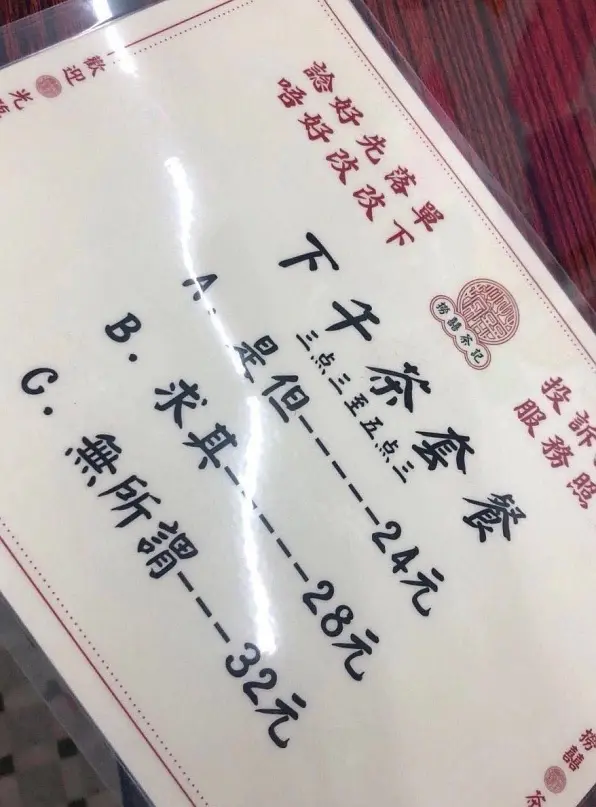 歡迎
光
諗好先落單
唔好改改下
撈囍茶記
投訴
服務照
下午茶套餐
三点三至五点三
A. 是但------24元
B. 求其------28元
C. 無所謂----32元
撈囍
茶